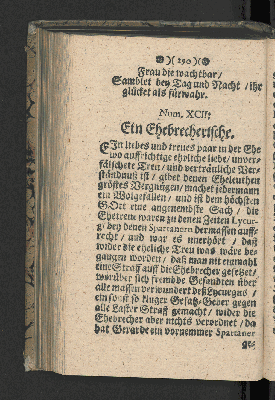 )( 290 )(
Frau die wachtbar/
Samblet bey Tag und Nacht/ ihr
glücket als fürwahr.
Num. XCII.
Ein Ehebrecherische.
EIn liebes und treues paar in der Ehe
wo auffrichtige ehrliche liebe/ unver-
fälschete Treu/ und verträuliche Ver-
ständnuß ist/ gibet denen Eheleuthen
gröstes Vergnügen/ machet jedermann
ein Wolgefallen/ und ist dem höchsten
GOtt eine angenembste Sach/ die
Ehetreue waren zu denen Zeiten Lycur-
g/ bey denen Spartanern dermassen auff-
recht/ und war es unerhört/ daß
wider die eheliche Treu was wäre be-
gangen worden/ daß man nit einmahl
eine Straff auff die Ehebrecher gesetzet/
worüber sich frembde Gesandten über
alle massen verwundert deß Lycurgus/
ein sonst so kluger Gesatz-Geber gegen
alle Laster Straff gemacht/ wider die
Ehebrecher aber nichts verordnet/ da
hat Gerarde ein vornemmer Spartaner
ge-